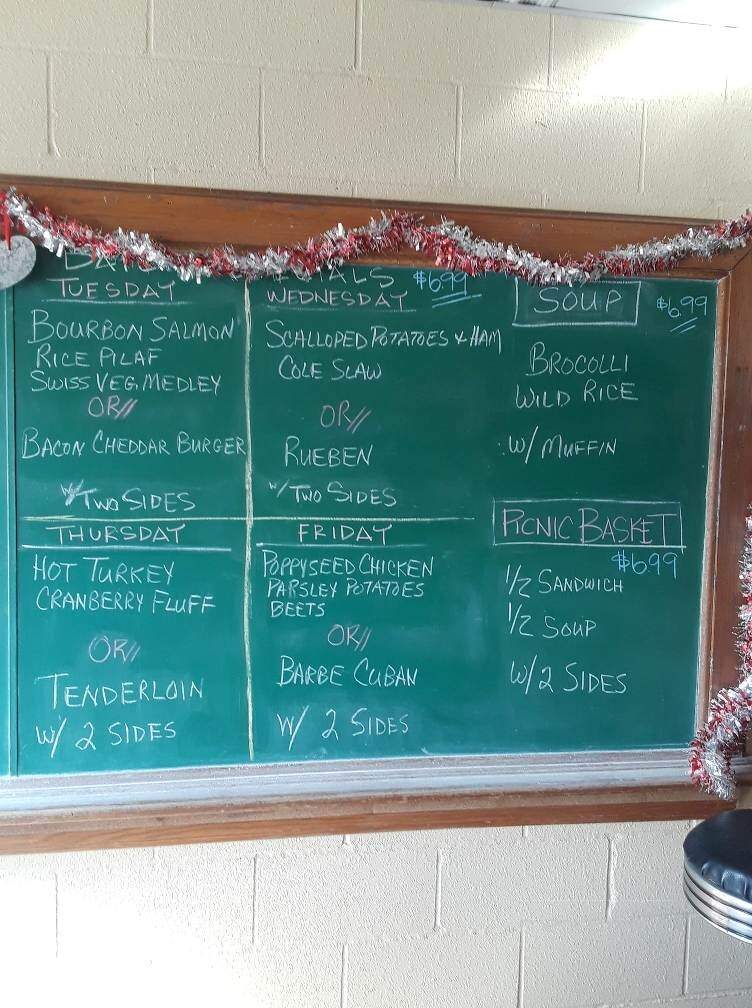 DAILY SPECIALS $6.99
TUESDAY
BOURBON SALMON
RICE PILAF
SWISS VEG. MEDLEY
OR//
BACON CHEDDAR BURGER
W/ TWO SIDES
WEDNESDAY
SCALLOPED POTATOES & HAM
COLE SLAW
OR//
RUEBEN
W/ TWO SIDES
THURSDAY
HOT TURKEY
CRANBERRY FLUFF
OR//
TENDERLOIN
W/ 2 SIDES
FRIDAY
POPPYSEED CHICKEN
PARSLEY POTATOES
BEETS
OR//
BARBE CUBAN
W/ 2 SIDES
SOUP $6.99
BROCOLLI
WILD RICE
W/ MUFFIN
PICNIC BASKET
$6.99
1/2 SANDWICH
1/2 SOUP
W/ 2 SIDES